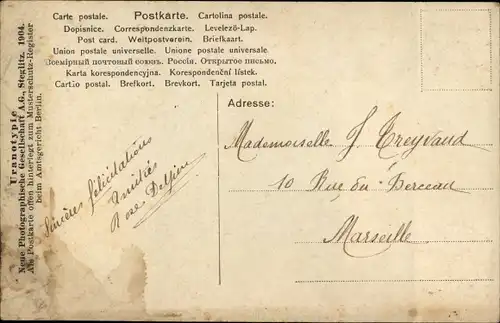 Carte postale. Postkarte. Cartolina postale.
Dopisnice. Correspondenzkarte. Levelező-Lap.
Post card. Weltpostverein. Briefkaart.
Union postale universelle. Unione postale universale
Всемірный почтовый союзъ. Россія. Открытое письмо.
Karta korespondencyjna. Korespondenční lístek.
Cartão postal. Brefkort. Brevkort. Tarjeta postal.
Uranotypie
Neue Photographische Gesellschaft A.G., Steglitz. 1904.
Als Postkarte offen hinterlegt zum Musterschutz-Register
beim Amtsgericht Berlin.
Sincères félicitations
Amitiés
Rose
Adresse:
Mademoiselle J Treyvaud
10 Rue du Berceau
Marseille